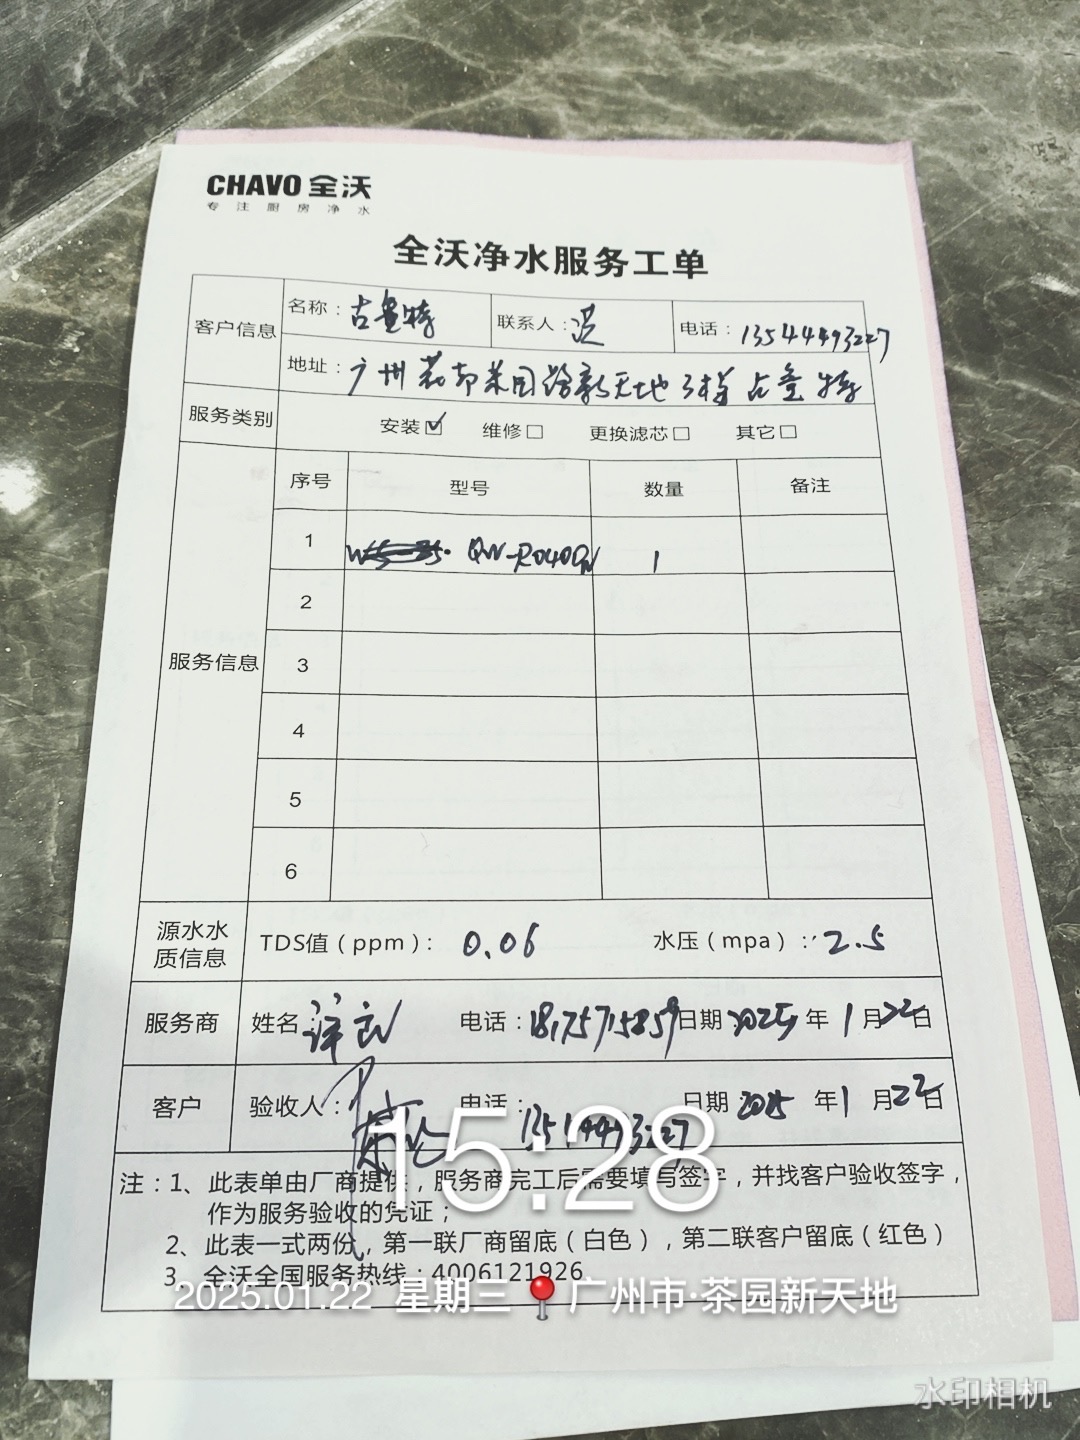 CHAVO 全沃
专注厨房净水
全沃净水服务工单
客户信息 名称：古鱼特 联系人： 电话：13544493227
地址：广州花都茶园路新天地3栋古鱼特
服务类别 安装☑ 维修□ 更换滤芯□ 其它□
服务信息 序号 型号 数量 备注
1 QW-RO400 1
2
3
4
5
6
源水水质信息 TDS值（ppm）：0.06 水压（mpa）：2.5
服务商 姓名： 电话：18175715859 日期 2025年1月22日
客户 验收人： 电话：13544493227 日期 2025年1月22日
注：1、此表单由厂商提供，服务商完工后需要填写签字，并找客户验收签字，
作为服务验收的凭证；
2、此表一式两份，第一联厂商留底（白色），第二联客户留底（红色）
3、全沃全国服务热线：4006121926
15:28
2025.01.22 星期三 广州市·茶园新天地
水印相机